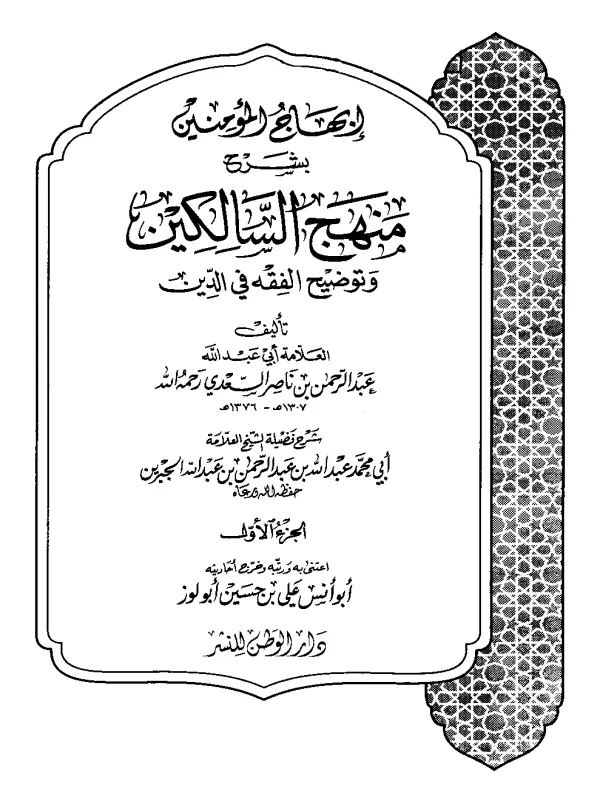 إبهاج المؤمنين
بشرح
منهج السالكين
وتوضيح الفقه في الدين
تأليف
العلامة أبي عبد الله
عبد الرحمن بن ناصر السعدي رحمه الله
١٣٠٧هـ - ١٣٧٦هـ
شرح فضيلة الشيخ العلامة
أبي محمد عبد الله بن عبد الرحمن بن عبد الله الجبرين
حفظه الله ورعاه
الجزء الأول
اعتنى به ورتبه وخرج أحاديثه
أبو أنس علي بن حسين أبو لوز
دار الوطن للنشر